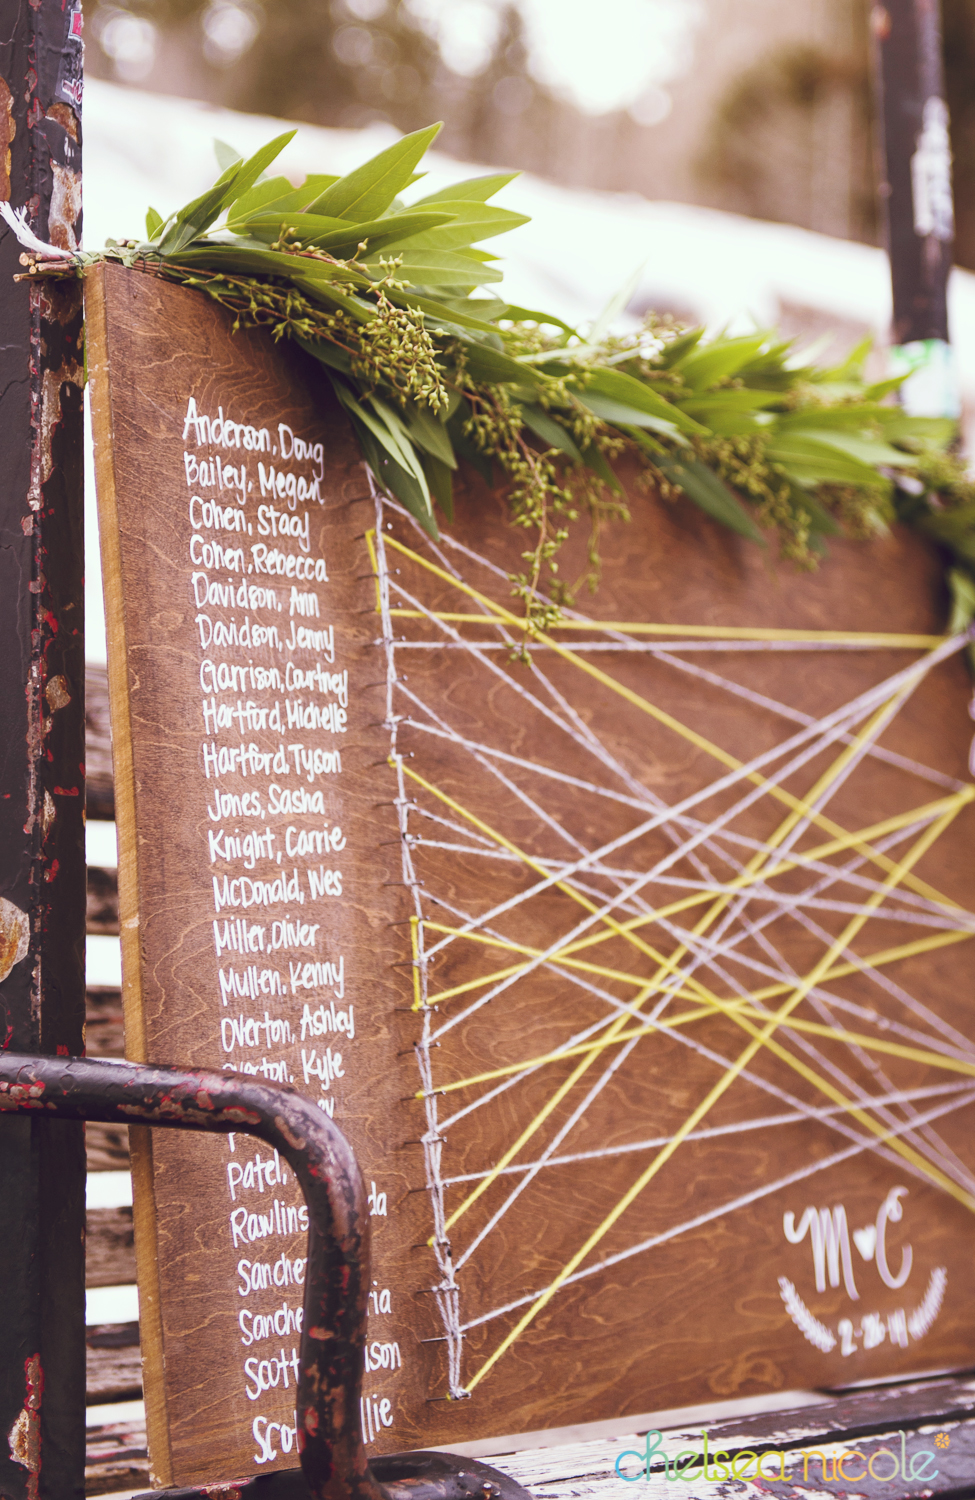 Anderson, Doug
Bailey, Megan
Cohen, Stacy
Cohen, Rebecca
Davidson, Ann
Davidson, Jenny
Garrison, Courtney
Hartford, Michelle
Hartford, Tyson
Jones, Sasha
Knight, Carrie
McDonald, Wes
Miller, Oliver
Mullen, Kenny
Overton, Ashley
Overton, Kyle
Patel,
Rawlins
M♥C
chelsea nicole